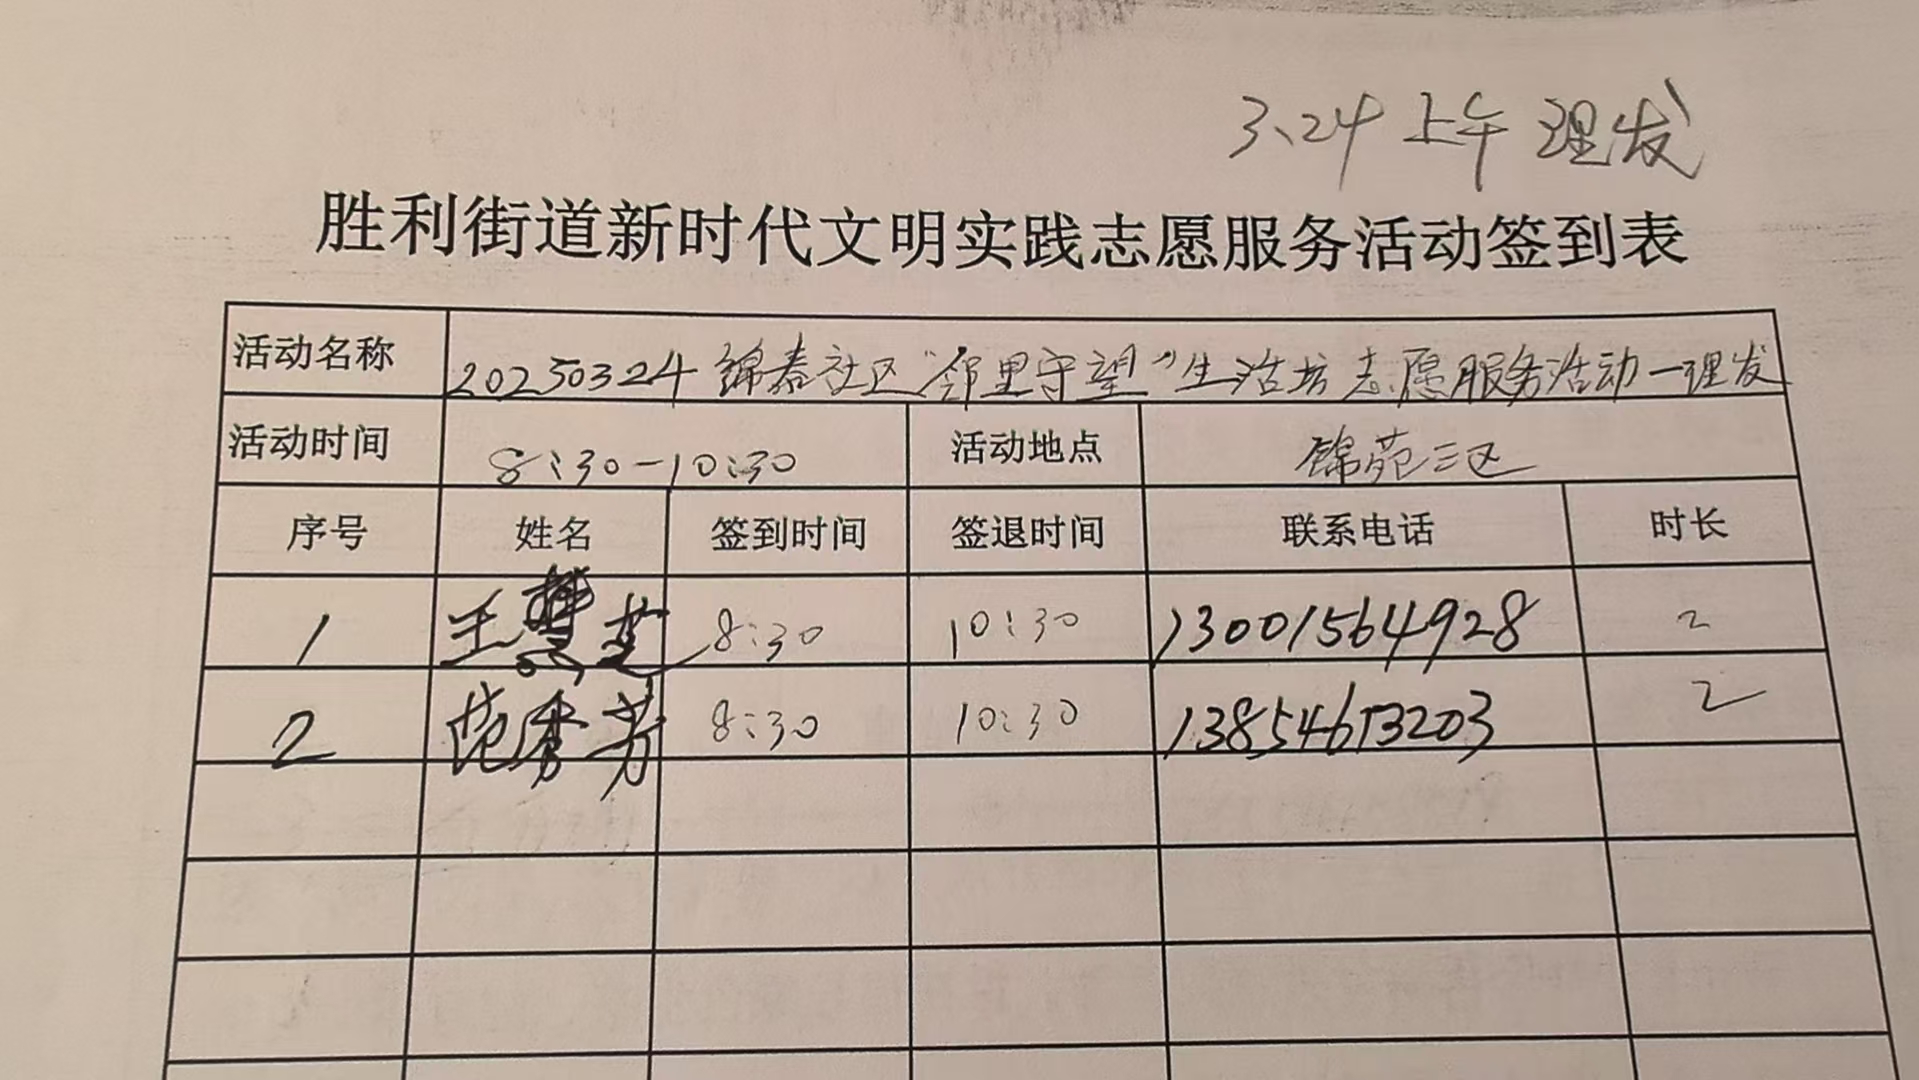 3.24 上午 理发
胜利街道新时代文明实践志愿服务活动签到表
活动名称 20250324锦春社区“邻里守望”生活坊志愿服务活动—理发
活动时间 8:30-10:30 活动地点 锦苑三区
序号 姓名 签到时间 签退时间 联系电话 时长
1 王 芝 8:30 10:30 13001564928 2
2 范秀芳 8:30 10:30 13854613203 2